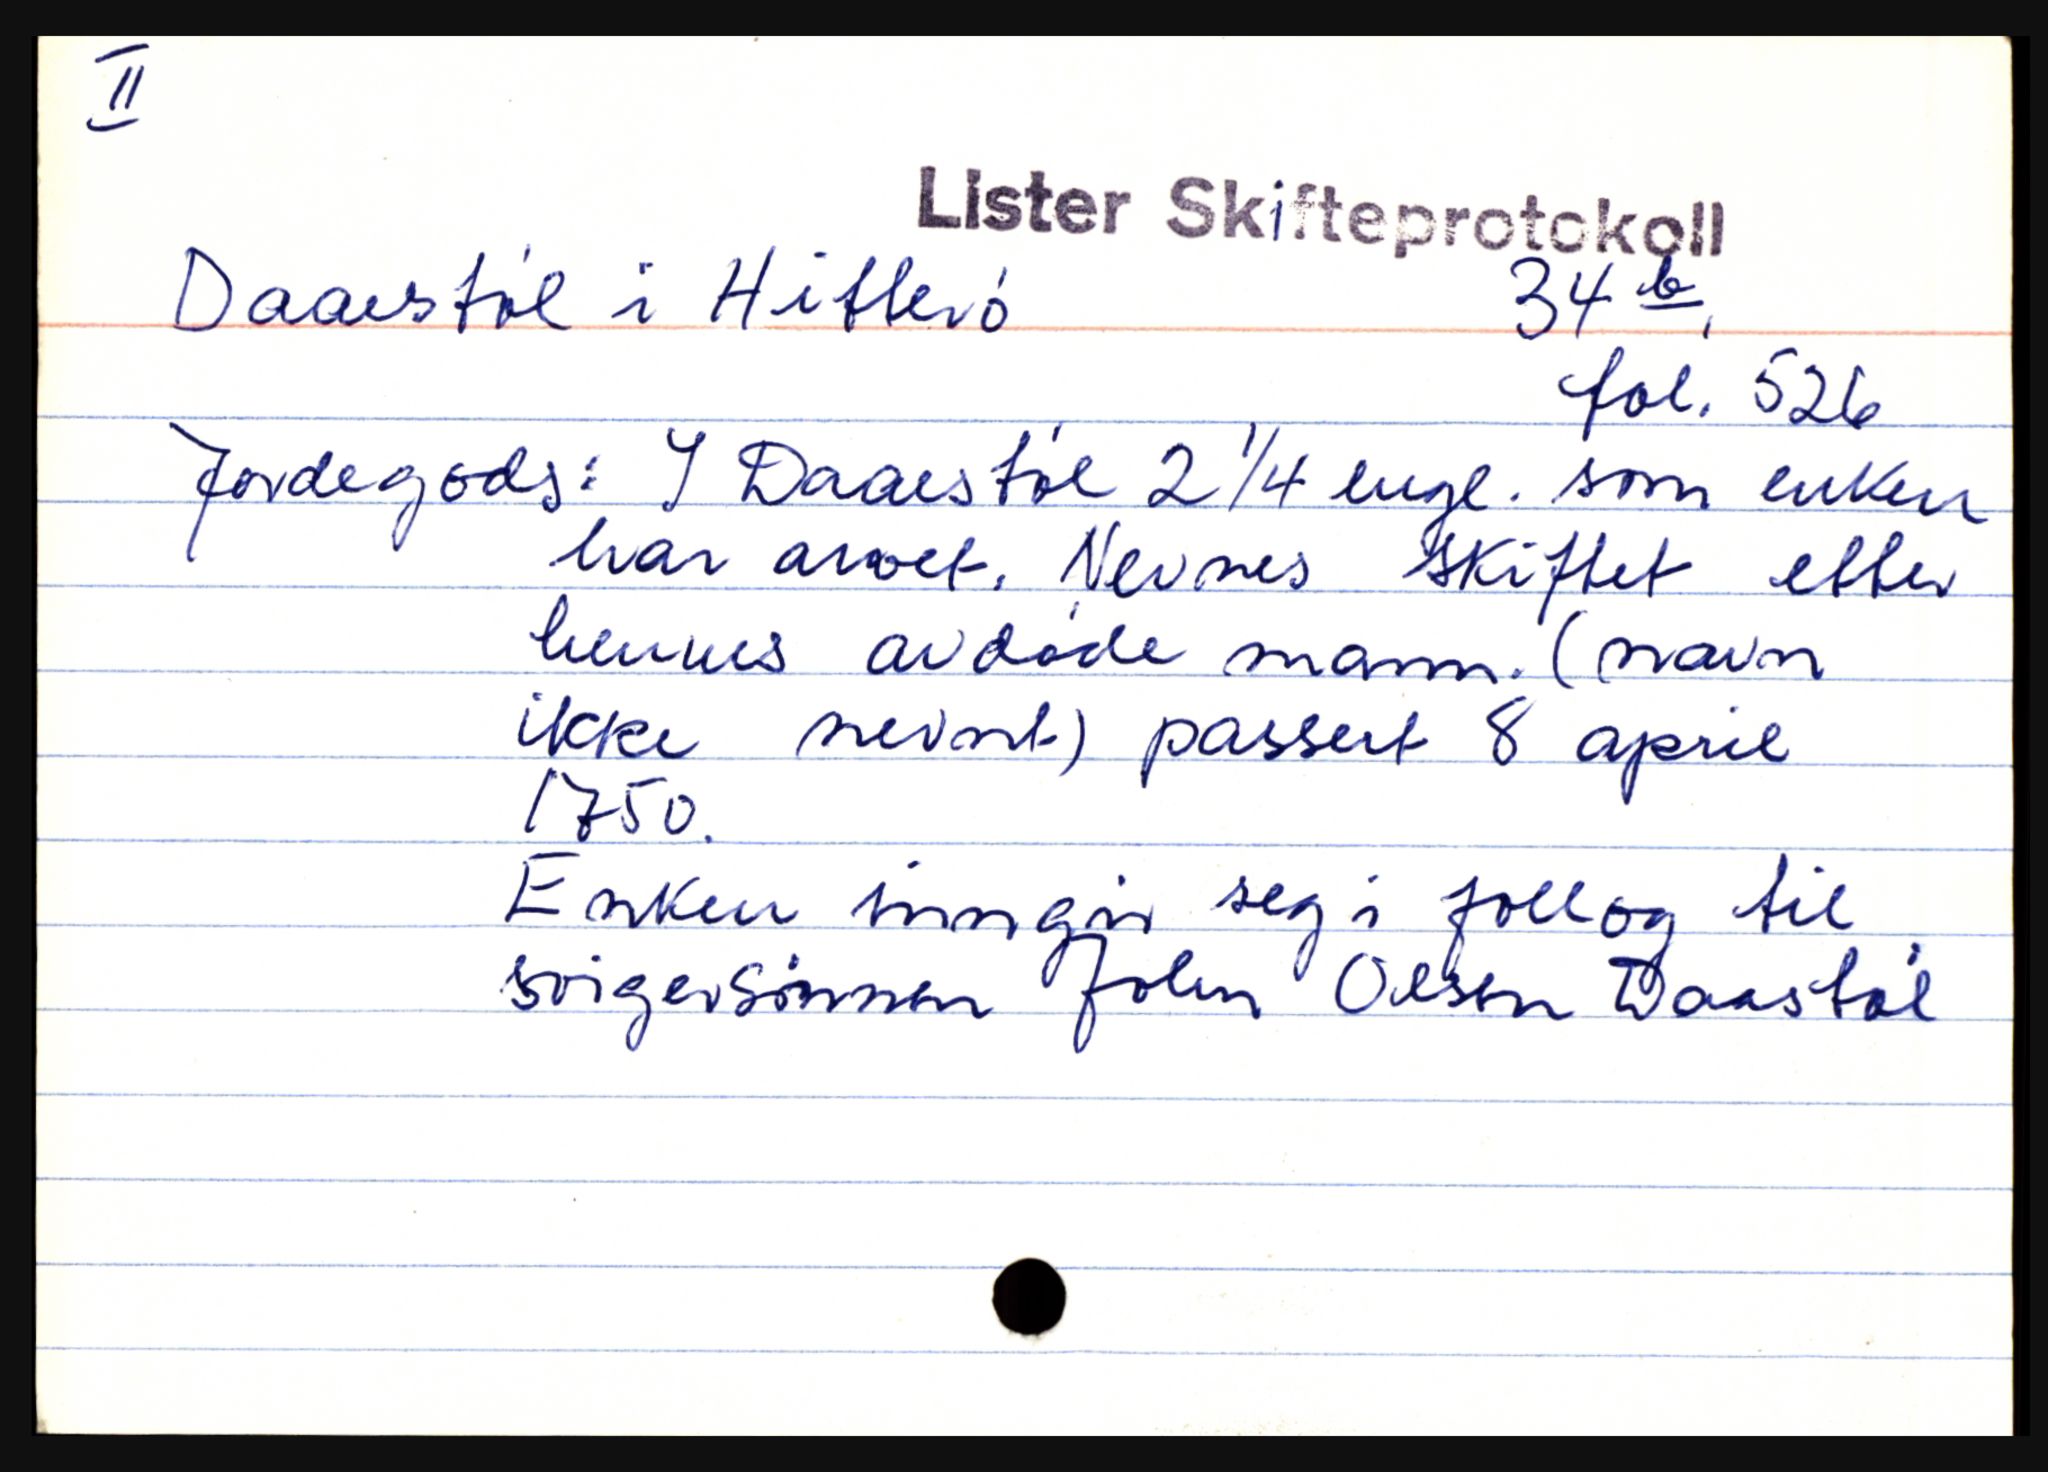 II
Lister Skifteprotokoll
Daaestøl i Hitterö 34 b,
fol. 526
Jordegods: I Daaestøl 2 1/4 engl. som enken
har arvet. Nevnes skiftet etter
hennes avdøde mann. (navn
ikke nevnt) passert 8 april
1750.
Enken inngir seg i follog til
svigersønnen John Olsen Daastøl